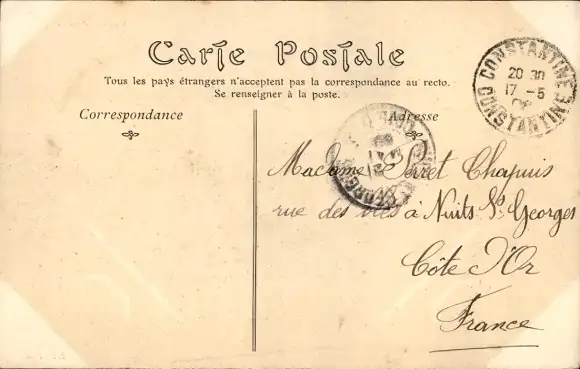 Carte Postale
Tous les pays étrangers n'acceptent pas la correspondance au recto.
Se renseigner à la poste.
Correspondance
Adresse
CONSTANTINE
20 30
17 - 5
CONSTANTINE
Madame Perret Chapuis
rue des à Nuits St Georges
Côte d'Or
France